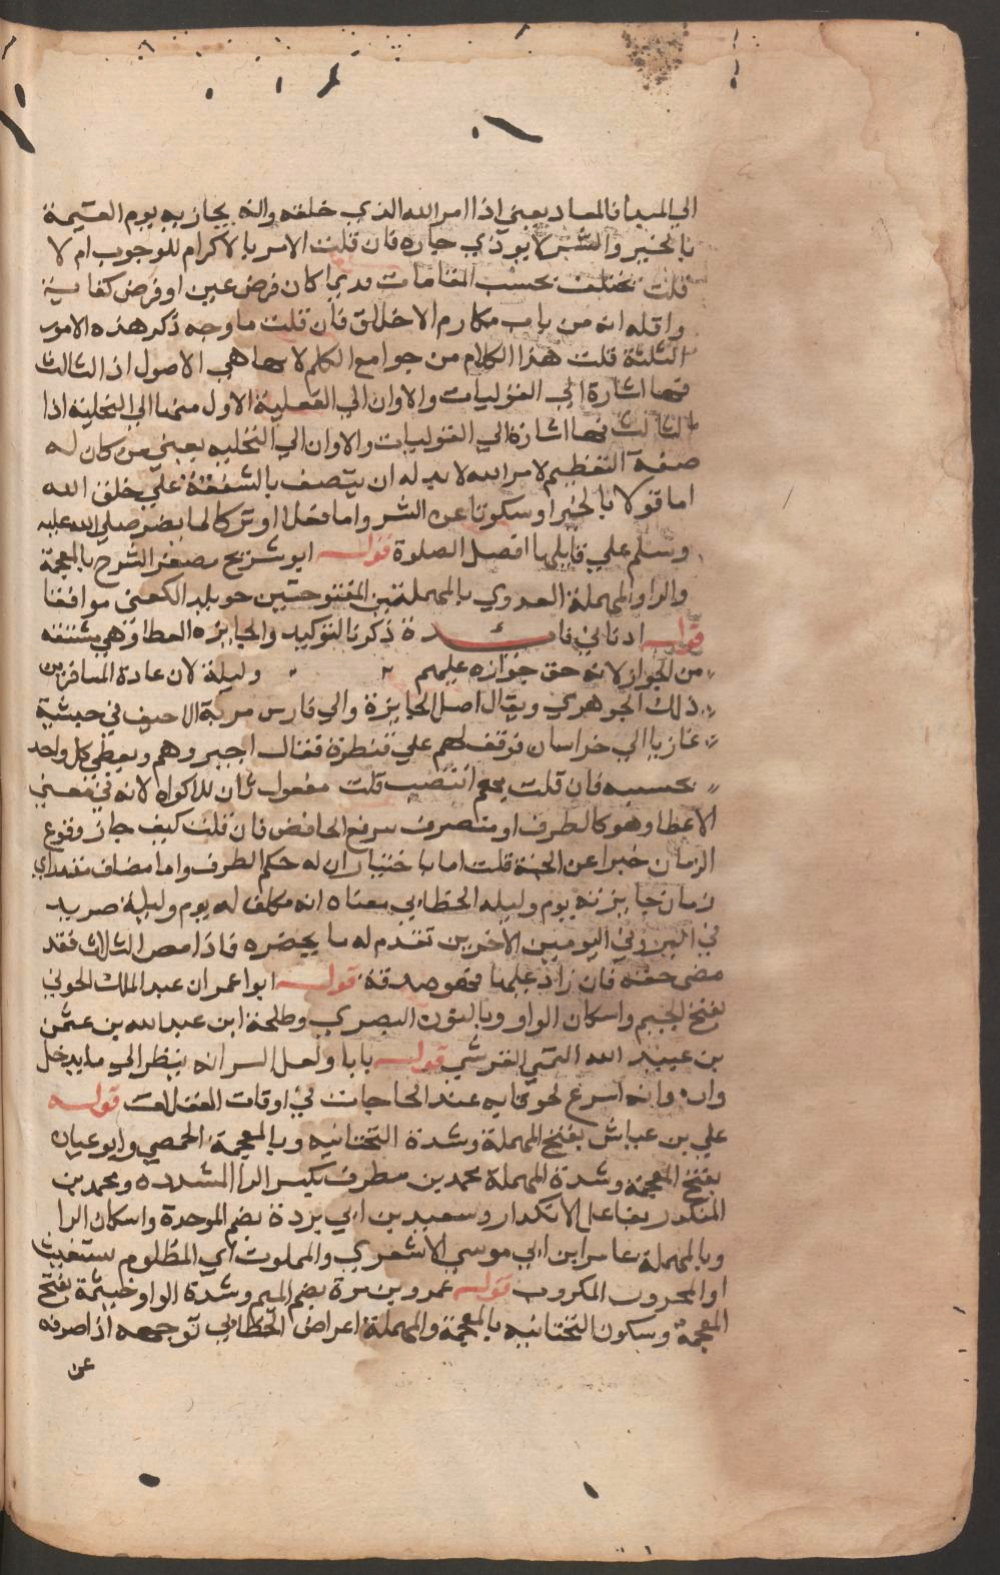 الي المبدا والمعاد يعني اذا امر الله الذي خلقه وانه يجازيه يوم القيمة
بالخير والشر لا يوذي جاره فان قلت الامر بالاكرام للوجوب ام لا
قلت تختلف بحسب المقامات فربما كان فرض عين او فرض كفاية
واقله انه من باب مكارم الاخلاق فان قلت ما وجه ذكر هذه الامور
الثلثة قلت هذا الكلام من جوامع الكلم لانها هي الاصول اذ الثالث
منها اشارة الي القوليات والاوان الي الفعلية الاول منهما الي التخلية اذا
الثالث منها اشارة الي القوليات والاوان الي التخليه يعني من كان له
صفة التعظيم لامر الله لا بد له ان يتصف بالشفقة علي خلق الله
اما قولا بالخير او سكوتا عن الشر واما فعلا او تركا لما يضر صلي الله عليه
وسلم علي قايلها افضل الصلوة قوله ابو شريح مصغر الشرح بالمعجمة
والراو المهملة العدوي بالمهملتين المفتوحتين خويلد الكعبي مواقفا
قوله اذناي فائدة ذكرنا التوكيد والجايزه العطا وهي مشتقه
من الجواز لانه حق جوازه عليهم وليلة لان عادة المسافرين
ذلك الجوهري ويقال اصل الجايزة والي فارس مر به الاحنف في جيشه
غازيا الي خراسان فوقف لهم علي قنطرة فقال اجيزوهم ويعطي كل واحد
بحسبه فان قلت بم انتصب قلت مفعول ثان للاكرام لانه في معني
الاعطا وهو كالظرف او منصوب بنزع الخافض فان قلت كيف جاز وقوع
الزمان خبرا عن الجثة قلت اما باختيار ان له حكم الظرف واما مضاف مقدر اي
زمان جايزته يوم وليله الخطابي معناه انه متكلف له يوم وليلة مزيد
في البر وفي اليومين الاخرين تقدم له ما يحضره فاذا مضي الثلاث فقد
مضي حقه فان زاد عليها فهو صدقة قوله ابوا عمران عبد الملك الجوني
بفتح الجيم واسكان الواو وبالنون البصري وطلحة ابن عبد الله بن عثمن
بن عبيد الله التيمي القرشي قوله بابا ولعل السر انه ينظر الي ما يدخل
وانه اسرع لحوقا به عند الحاجات في اوقات الغفلات قوله
علي بن عياش بفتح المهملة وشدة التحتانيه وبالمعجمة الحمصي وابو غسان
بفتح المعجمة وشدة المهملة محمد بن مطرف بكسر الرا المشدده ومحمد بن
المنكدر بفاعل الانكدار وسعيد بن ابي بردة بضم الموحدة واسكان الرا
وبالمهملة عامر ابن ابي موسي الاشعري والملهوف اي المظلوم يستغيث
او المحزون المكروب قوله عمرو بن مرة بضم الميم وشدة الرا وخيثمة بفتح
المعجمة وسكون التحتانيه بالمعجمة والمهملة اعراض الخطابي توجهه اذا صرفه
عن